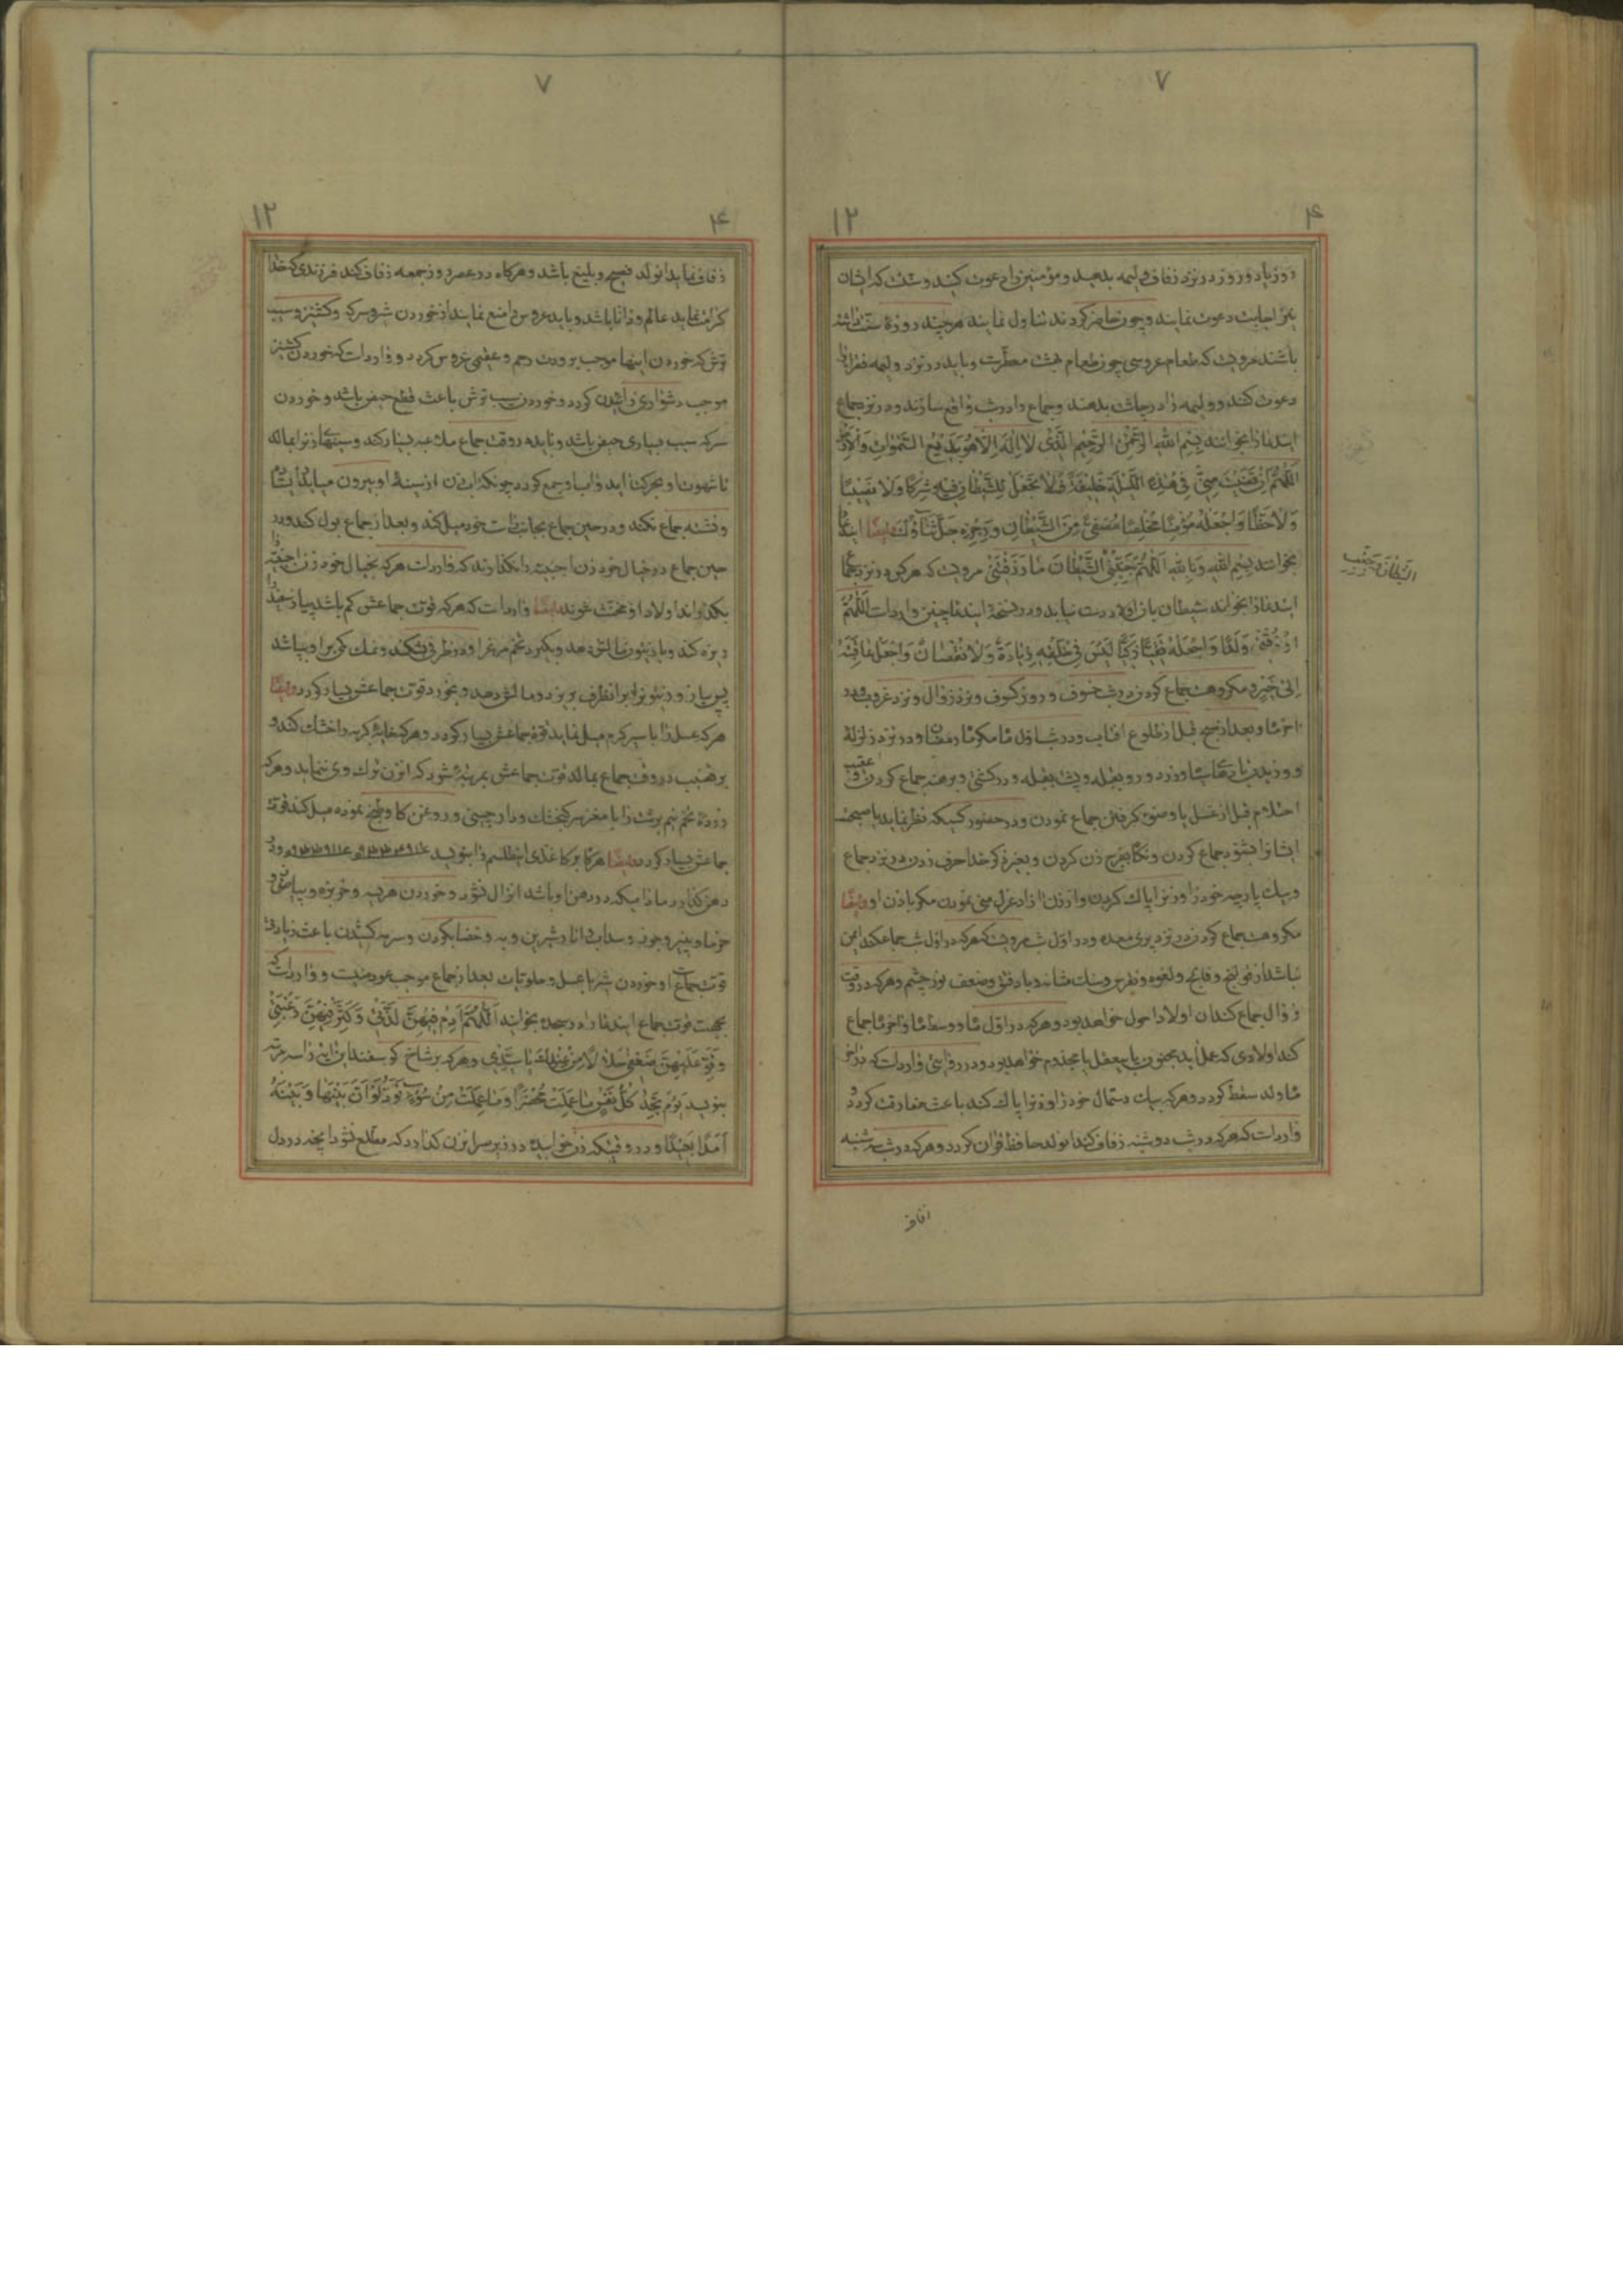 ۷
۴ ۱۲
روز یا دو روز در نزد زفاف ولیمه بدهند و مؤمنین را دعوت کنند و سنت که ایشان
نیز اجابت دعوت نمایند و چون حاضر گردند تناول نمایند هر چند روزهٔ سنت داشته
باشند مرویست که طعام عروسی چون طعام بهشت معطرست و باید در نزد ولیمه فقرا را
دعوت کنند و ولیمه را در چاشت بدهند و جماع را در شب واقع سازند و در نزد جماع
ایندعا را بخوانند بِسْمِ اللهِ الرَّحْمٰنِ الرَّحیمِ الَّذی لا اِلٰهَ اِلّا هُوَ بَدیعُ السَّمٰواتِ وَالْاَرْضِ
اَللّٰهُمَّ اِنْ قَضَیْتَ مِنّی فی هٰذِهِ اللَّیْلَةِ خَلیفَةً فَلا تَجْعَلْ لِلشَّیْطانِ فیهِ شِرْکًا وَلا نَصیبًا
وَلا حَظًّا وَاجْعَلْهُ مُؤْمِنًا مُخْلِصًا مُصَفًّی مِنَ الشَّیْطانِ وَرِجْزِهِ جَلَّ ثَنآؤُکَ ایضًا ایندعا
بخوانند بِسْمِ اللهِ وَبِاللهِ اَللّٰهُمَّ جَنِّبْنِی الشَّیْطانَ ما رَزَقْتَنی مرویست که هر که در نزد جماع
ایندعا را بخواند شیطان بازن او نیاید و در نسخهٔ ایندعا چنین وارد است اَللّٰهُمَّ
ارْزُقْنی وَلَدًا وَاجْعَلْهُ تَقِیًّا زَکِیًّا لَیْسَ فی خَلْقِهِ زِیادَةٌ وَلا نُقْصانٌ وَاجْعَلْ عاقِبَتَهُ
اِلٰی خَیْرٍ و مکروهست جماع کردن در شب خسوف و روز کسوف و نزد زوال و نزد غروب و در
آخر ماه و بعد از صبح قبل از طلوع آفتاب و در شب اول ماه مگر ماه رمضان و در نزد زلزله
و وزیدن باد سیاه و زرد و رو بقبله و پشت بقبله و در کشتی و برهنه جماع کردن و عقب
احتلام قبل از غسل یا وضو گرفتن جماع نمودن و در حضور کسیکه نظر نماید یا صحبت
ایشانرا بشنود جماع کردن و نگاه بفرج زن کردن و بغیر ذکر خدا حرف زدن در نزد جماع
و بیک پارچه خود را و زنرا پاک کردن و از زن آزاد عزل منی نمودن مگر باذن او و ایضًا
مکروهست جماع کردن در نزد پری معده و در اول شب مرویست که هر که در اول شب جماع کند ایمن
نباشد از قولنج و فالج و لقوه و نقرس و سنگ مثانه و باد فتق و ضعف نور چشم و هر که در وقت
زوال جماع کند آن اولاد احول خواهد بود و هر که در اول ماه و وسط ماه و آخر ماه جماع
کند اولادی که بعمل آید مجنون یا بیعقل یا مجذوم خواهد بود و در روایتی وارد است که در آخر
ماه ولد سقط گردد و هر که بیک دستمال خود را و زنرا پاک کند باعث مفارقت گردد و
وارد است که هر که در شب دوشنبه زفاف کند آنولد حافظ قرآن گردد و هر که در شب سه شنبه
الشیطان و جنّب
زفاف
۷
۴ ۱۲
زفاف نماید آنولد فصیح و بلیغ باشد و هر گاه در عصر روز جمعه زفاف کند فرزندی که خدا
کرامت نماید عالم و دانا باشد و باید عروس را منع نمایند از خوردن شیر و سرکه و گشنیز و سیب
ترش که خوردن اینها موجب برودت رحم و عقیمی عروس گردد و وارد است که خوردن گشنیز
موجب دشواری زائیدن گردد و خوردن سیب ترش باعث قطع حیض باشد و خوردن
سرکه سبب بسیاری حیض باشد و باید در وقت جماع ملاعبه بسیار کند و سینهای زنرا بمالد
تا شهوت او بحرکت آید و آب او جمع گردد چونکه آب زن از سینهٔ او بیرون میآید
و تشنه جماع نکند و در حین جماع بجانب راست خود میل کند و بعد از جماع بول کند و در
حین جماع در خیال خود زن اجنبیه را نگذارند که وارد است هر که بخیال خود زن اجنبیه را
بگذراند اولاد او مخنث شوند ایضًا وارد است که هر که قوت جماعش کم باشد پیاز سفید را
ریزه کند و پس پیاز و زیتونرا بر آنظرف بریزد و مالش دهد و بخورد قوت جماعش بسیار گردد و ایضًا
هر که عسل را با سیر گرم میل نماید قوهٔ جماعش بسیار گردد و هر که خایهٔ گربه را خشک کند و
بر قضیب در وقت جماع بمالد قوت جماعش بمرتبهٔ شود که آنزن ترک وی ننماید و هر که
زردهٔ تخم نیم برشت را با مغز سر گنجشک و دارچینی و روغن گاو طبخ نموده میل کند قوت
جماعش بسیار گردد و ایضًا هر گاه بر کاغذی اینطلسم را بنویسد
دهن گذارد مادامیکه در دهن او باشد انزال نشود و خوردن هریسه و خربزه و پیاز
خرما و پنیر و جوز و سداب و انار شیرین و به و خضاب کردن و سرمه کشیدن باعث زیادتی
قوت جماع و خوردن شربت عسل و حلویات بعد از جماع موجب عود منیست و وارد است که
بجهت قوت جماع ایندعا را در سجده بخواند اَللّٰهُمَّ اَدِمْ فیهِنَّ لَذَّتی وَکَثِّرْ فیهِنَّ رَغْبَتی
وَقَوِّ عَلَیْهِنَّ ضَعْفی حَلالًا مِنْ عِنْدِکَ یا سَیِّدی و هر که بر شاخ گوسفند این آیه را سه مرتبه
بنویسد یَوْمَ تَجِدُ کُلُّ نَفْسٍ ما عَمِلَتْ مُحْضَرًا وَما عَمِلَتْ مِنْ سُوءٍ تَوَدُّ لَوْ اَنَّ بَیْنَها وَبَیْنَهُ
اَمَدًا بَعیدًا و در وقتیکه زن خوابیده در زیر سر آنزن گذارد که مطلع نشود آنچه در دل